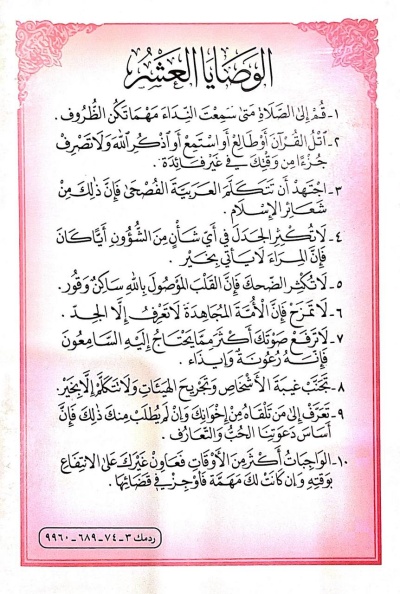 الوَصَايَا العَشْرُ
١- قُمْ إِلَى الصَّلَاةِ مَتَى سَمِعْتَ النِّدَاءَ مَهْمَا تَكُنِ الظُّرُوف .
٢- اُتْلُ القُرْآنَ أَوْ طَالِعْ أَوِ اسْتَمِعْ أَوِ اذْكُرِ اللهَ وَلَا تَصْرِفْ
جُزْءًا مِن وَقْتِكَ فِي غَيْرِ فَائِدَة .
٣- اجْتَهِدْ أَن تَتَكَلَّمَ العَرَبِيَّةَ الفُصْحَى فَإِنَّ ذَلِكَ مِنْ
شَعَائِرِ الإِسْلَامِ .
٤- لَا تُكْثِرِ الجَدَلَ فِي أَيِّ شَأْنٍ مِنَ الشُّؤُونِ أَيًّا كَانَ
فَإِنَّ المِرَاءَ لَا يَأْتِي بِخَيْر .
٥- لَا تُكْثِرِ الضَّحِكَ فَإِنَّ القَلْبَ المَوْصُولَ بِاللهِ سَاكِنٌ وَقُور .
٦- لَا تَمْزَحْ فَإِنَّ الأُمَّةَ المُجَاهِدَةَ لَا تَعْرِفُ إِلَّا الجِدَّ .
٧- لَا تَرْفَعْ صَوْتَكَ أَكْثَرَ مِمَّا يَحْتَاجُ إِلَيْهِ السَّامِعُونَ
فَإِنَّهُ رُعُونَةٌ وَإِيذَاء .
٨- تَجَنَّبْ غِيبَةَ الأَشْخَاصِ وَتَجْرِيحَ الهَيْئَاتِ وَلَا تَتَكَلَّمْ إِلَّا بِخَيْر.
٩- تَعَرَّفْ إِلَى مَن تَلْقَاهُ مِنْ إِخْوَانِكَ وَإِنْ لَمْ يُطْلَبْ مِنكَ ذَلِكَ فَإِنَّ
أَسَاسَ دَعْوَتِنَا الحُبُّ وَالتَّعَارُف .
١٠- الوَاجِبَاتُ أَكْثَرُ مِنَ الأَوْقَاتِ فَعَاوِنْ غَيْرَكَ عَلَى الانْتِفَاعِ
بِوَقْتِهِ وَإِن كَانَتْ لَكَ مَهَمَّة فَأَوْجِزْ فِي قَضَائِهَا .
ردمك ٣-٧٤-٦٨٩-٩٩٦٠